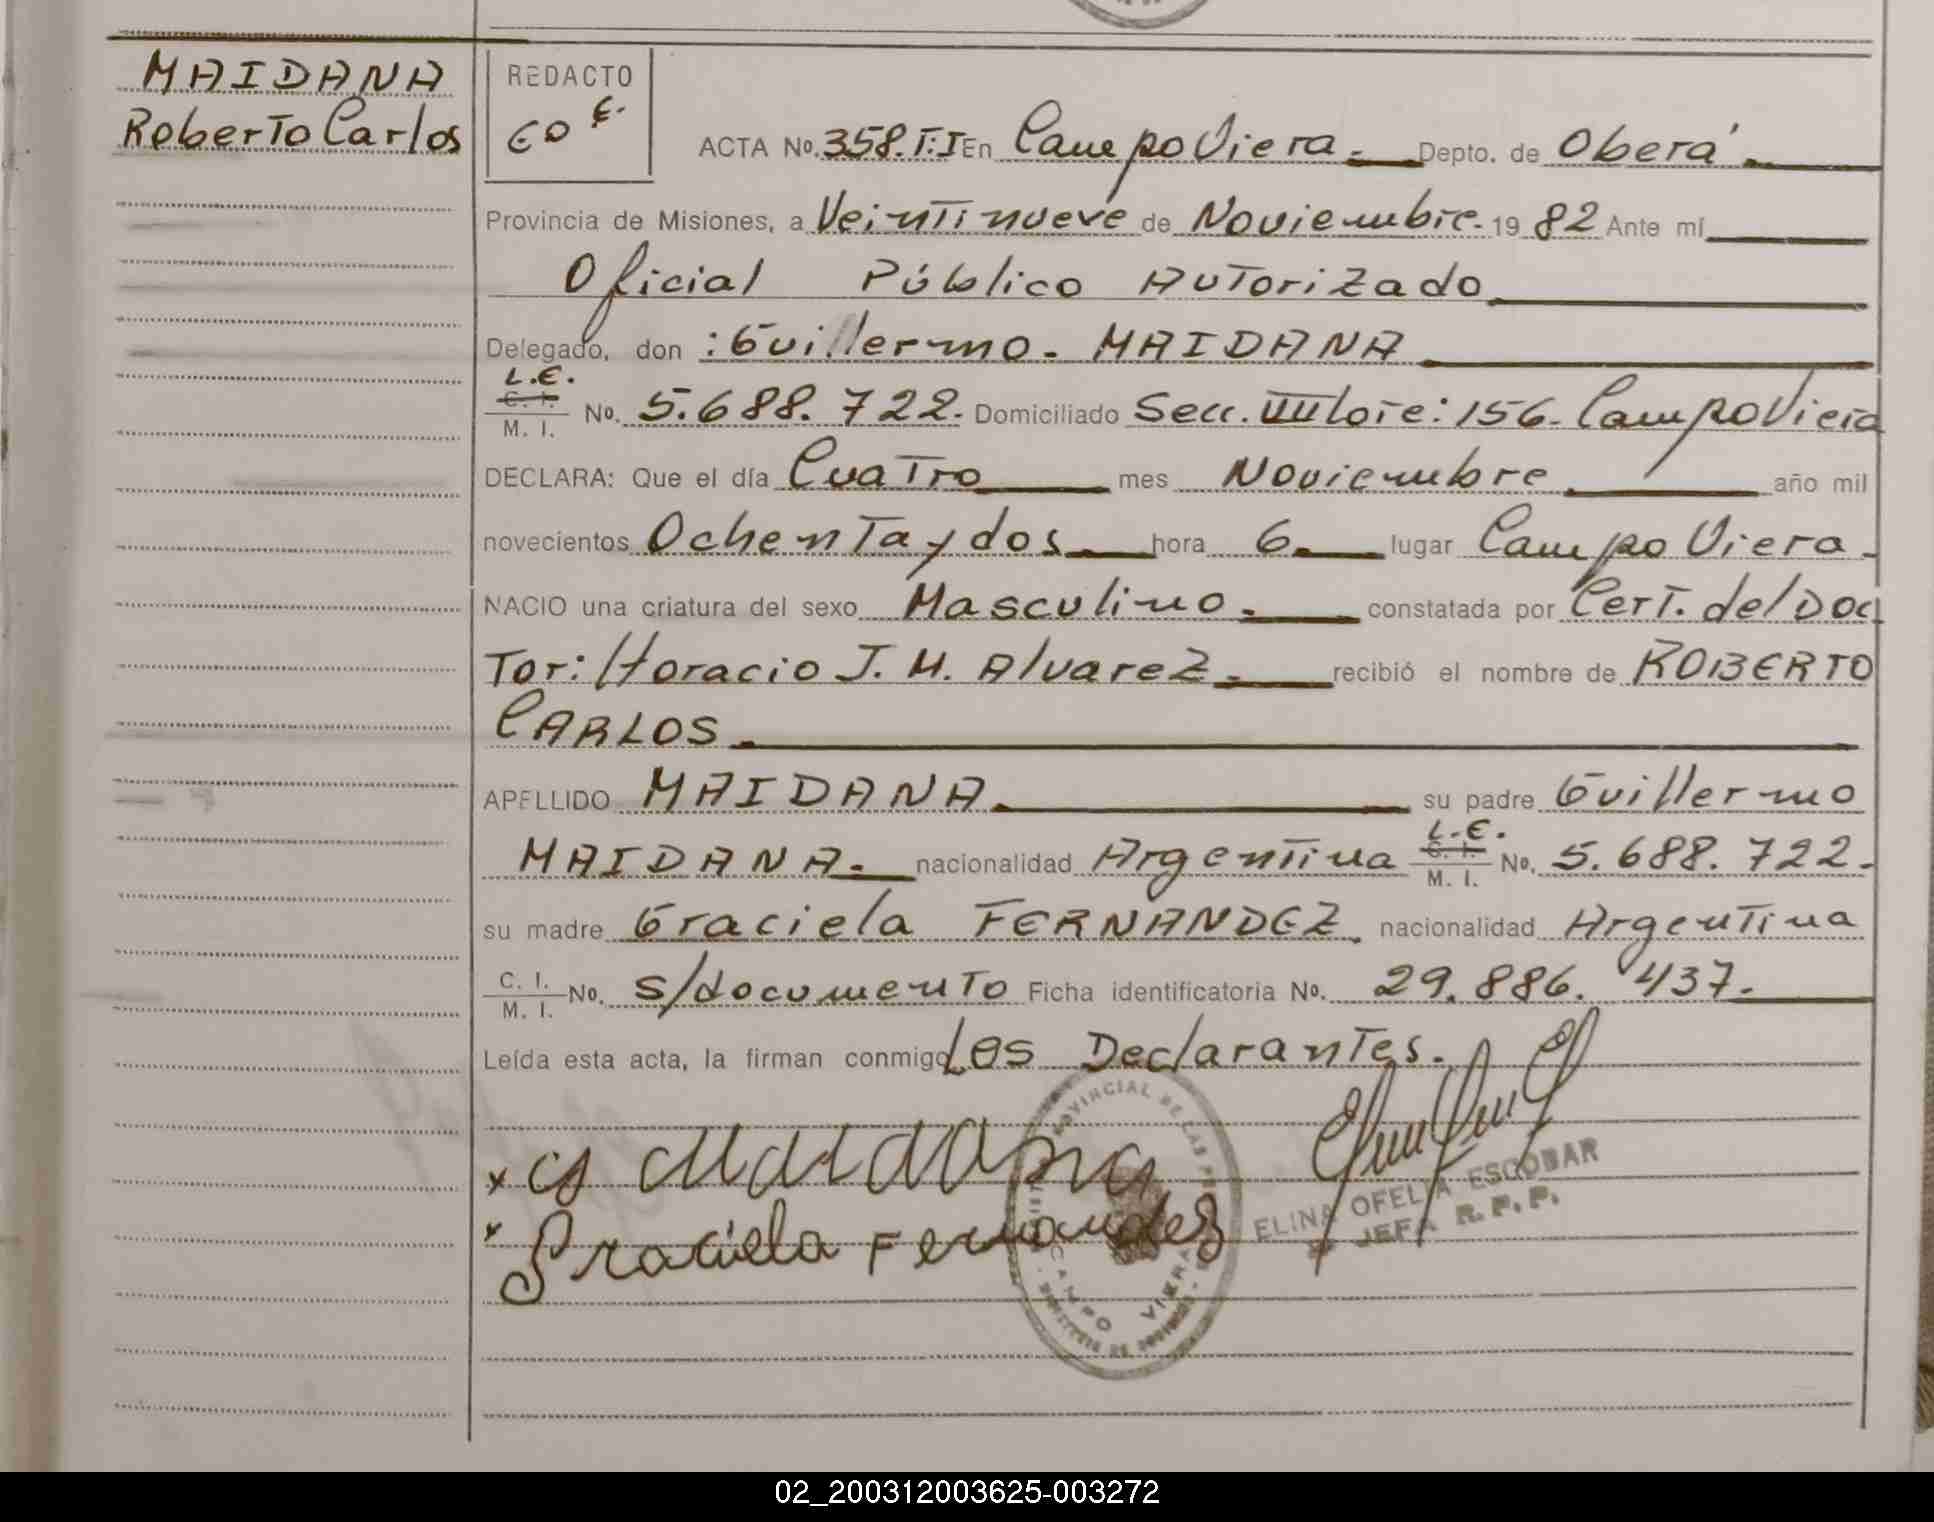 MAIDANA
Roberto Carlos
REDACTO
ACTA No. 358. T:I En Campo Viera. Depto. de Oberá.
Provincia de Misiones, a Veintinueve de Noviembre. 1982 Ante mí
Oficial Público Autorizado
Delegado, don : Guillermo. MAIDANA
L.E.
C. I.
M. I. No. 5.688.722. Domiciliado Secc. III Lote: 156. Campo Viera
DECLARA: Que el día Cuatro mes Noviembre año mil
novecientos Ochenta y dos hora 6. lugar Campo Viera.
NACIO una criatura del sexo Masculino. constatada por Cert. del Doc
Tor: Horacio J. M. Alvarez. recibió el nombre de ROBERTO
CARLOS.
APELLIDO MAIDANA. su padre Guillermo
MAIDANA. nacionalidad Argentina L.E. C. I. M. I. No. 5.688.722.
su madre Graciela FERNANDEZ. nacionalidad Argentina
C. I. M. I. No. s/documento Ficha identificatoria No. 29.886.437.
Leída esta acta, la firman conmigo Los Declarantes.
x G Maidana
x Graciela Fernandez
PROVINCIAL DE LAS
CAMPO VIERA
ELINA OFELIA ESCOBAR
JEFA R.P.P.
02_200312003625-003272